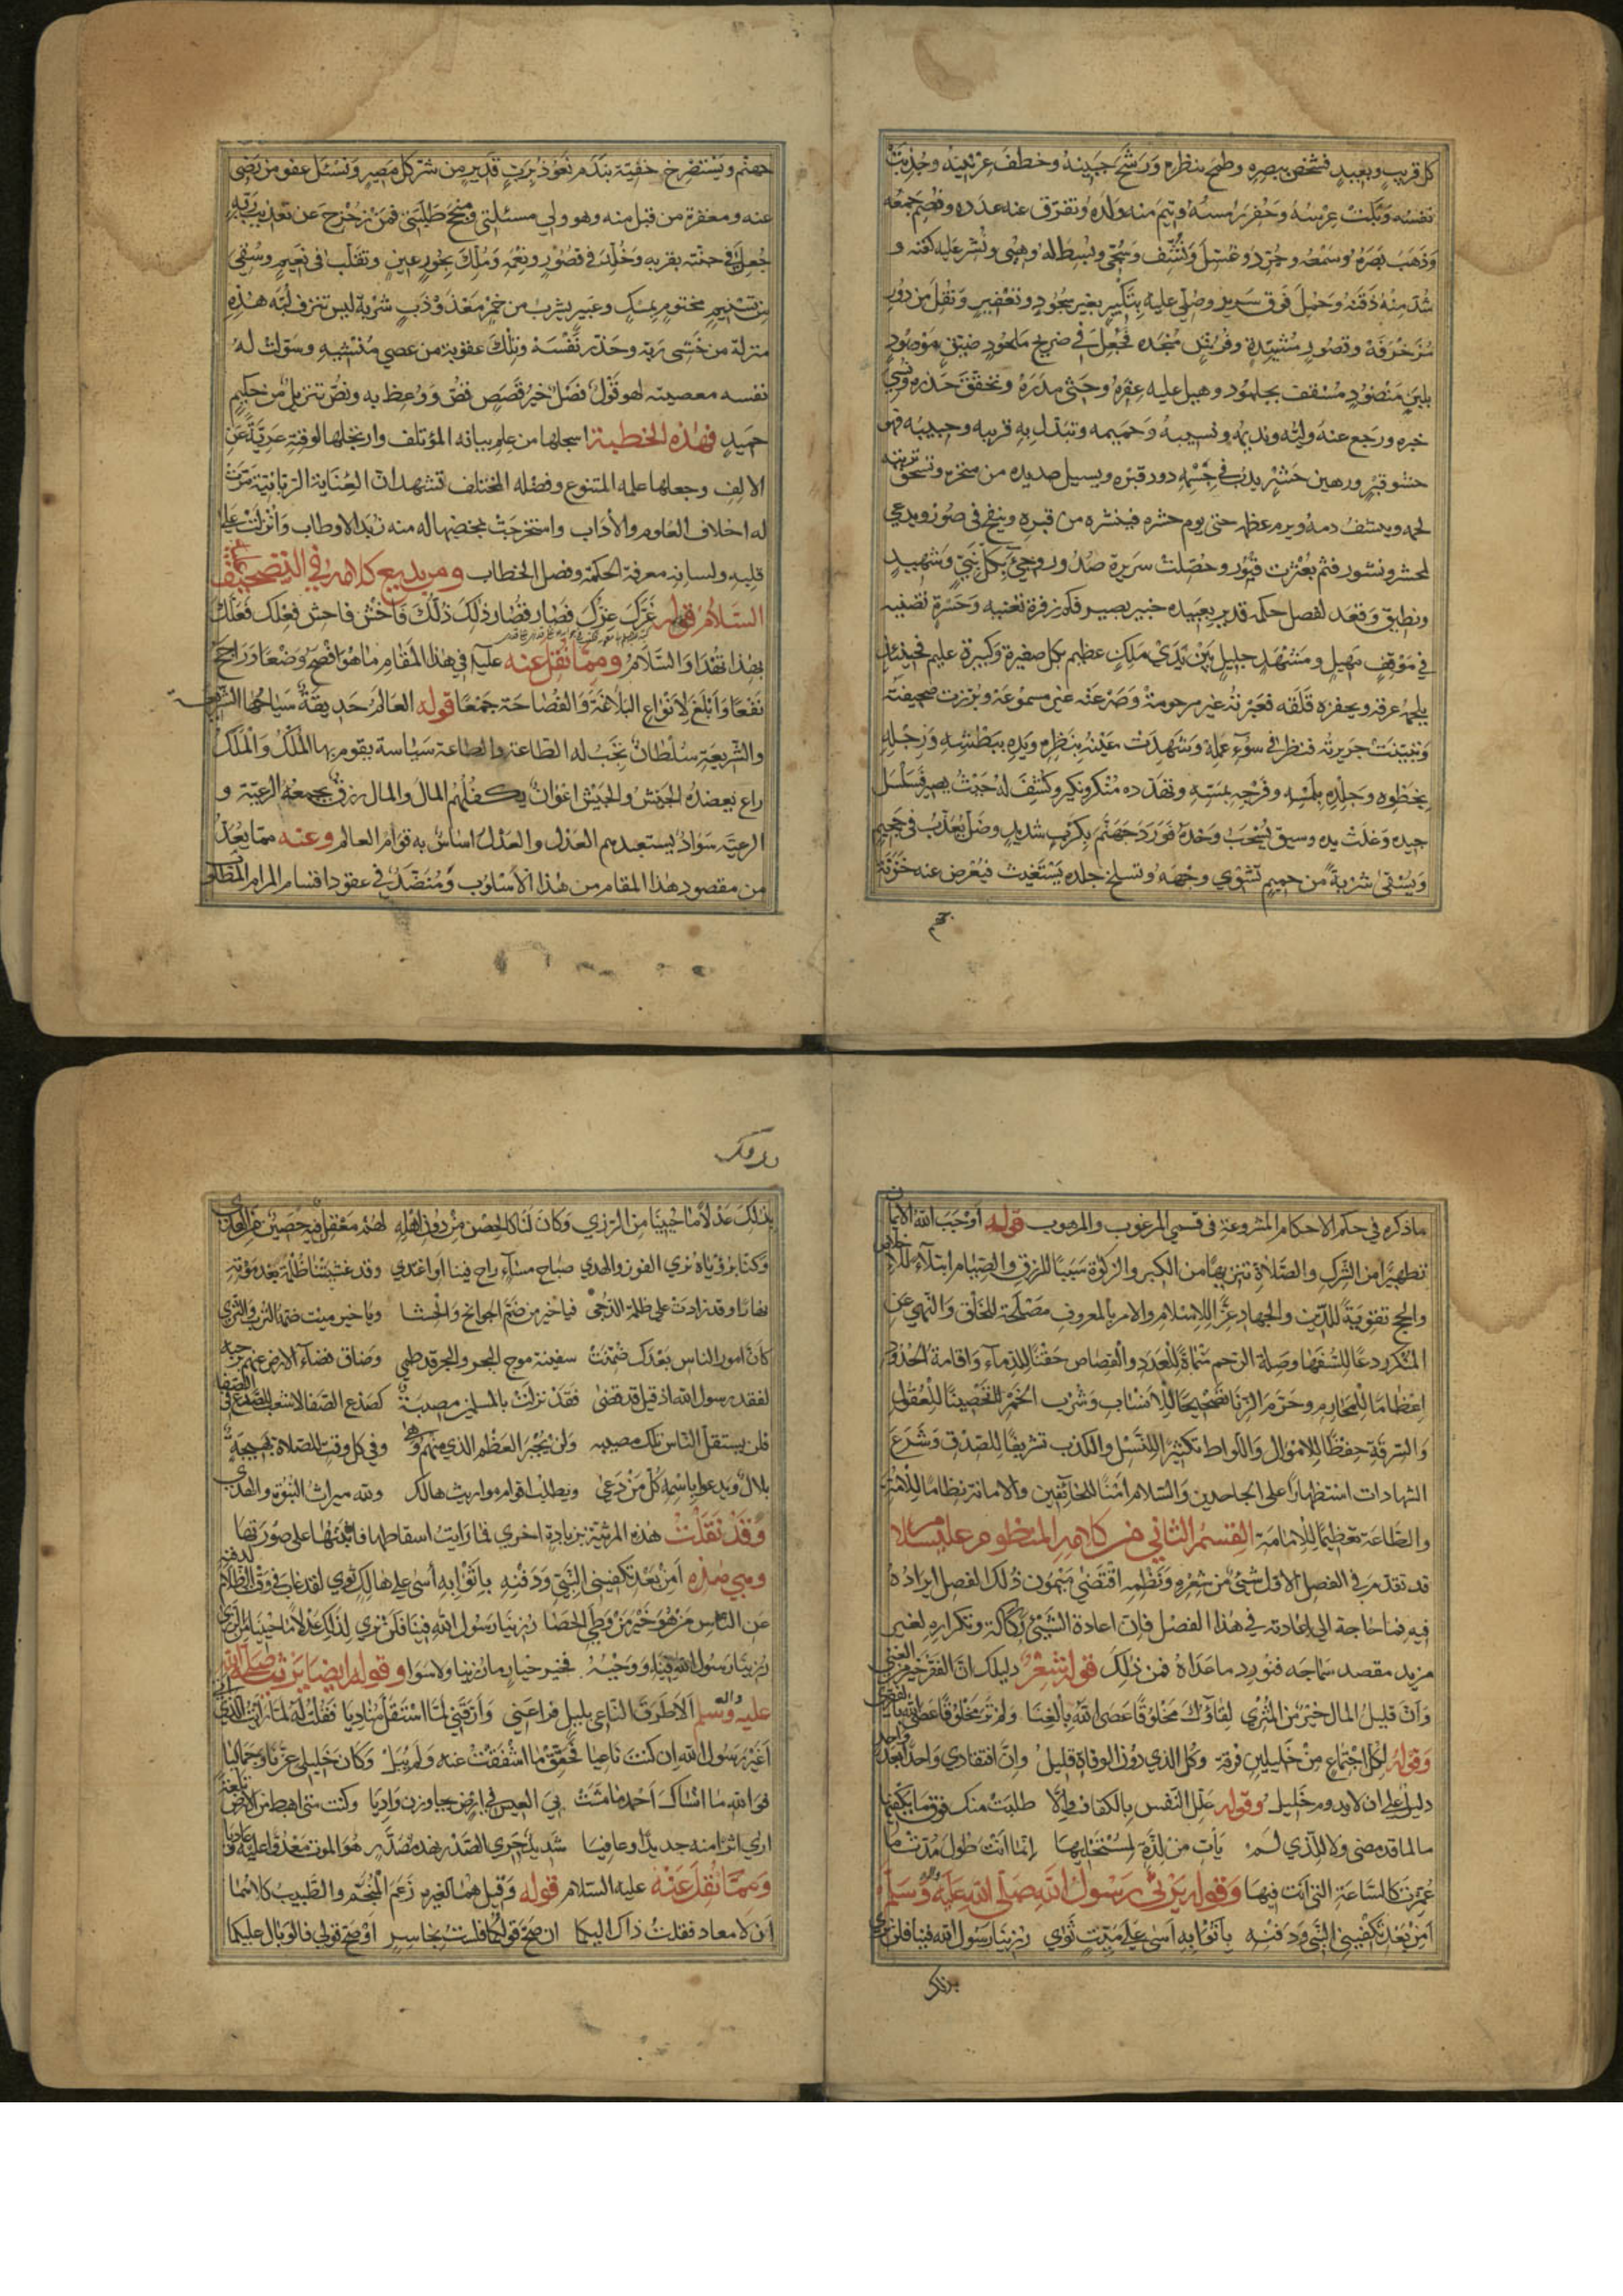 كل قريب وبعيد فشخص ببصره وطمح بنظره ورشح جبينه وخطف عرنينه وجذبت
نفسه وبكت عرسه وحفر رمسه ويتم منه ولده وتفرق عنه عدده وفصم جمعه
وذهب بصره وسمعه وجرد وغسل ونشف وسجي وبسط له وهيئ ونشر عليه كفنه و
شد منه ذقنه وحمل فوق سرير وصلي عليه بتكبير بغير سجود وتعفير ونقل من دور
مزخرفة وقصور مشيدة وفرش منجدة فجعل في ضريح ملحود ضيق موصود
بلبن منضود مسقف بجلمود وهيل عليه عفره وحثي مدره وتحقق حذره ونسي
خبره ورجع عنه وليه ونديمه ونسيبه وحميمه وتبدل به قريبه وحبيبه فهو
حشو قبر ورهين حشر يدب في جسمه دود قبره ويسيل صديده من منخره وتسحق تربته
لحمه وينشف دمه ويرم عظمه حتى يوم حشره فينشره من قبره وينفخ في صور ويدعى
لمحشر ونشور فثم بعثرت قبور وحصلت سريرة صدور وجيء بكل نبي وشهيد
ونطيق وقعد لفصل حكمه قدير بعبيده خبير بصير فكم زفرة تعنيه وحسرة تضنيه
في موقف مهيل ومشهد جليل بين يدي ملك عظيم بكل صغيرة وكبيرة عليم فحينئذ
يلجمه عرقه ويحفزه قلقه فعبرته غير مرحومة وصرخته غير مسموعة وبرزت صحيفته
وتبينت جريرته فنظر في سوء عمله وشهدت عينه بنظره ويده ببطشه ورجله
بخطوه وجلده بلمسه وفرجه بمسه وتهدده منكر ونكير وكشف له حيث يصير فسلسل
جيده وغلت يده وسيق يسحب وحده فورد جهنم بكرب شديد وظل يعذب في جحيم
ويسقى شربة من حميم تشوي وجهه وتسلخ جلده يستغيث فيعرض عنه خزنة
جهنم
جهنم ويستصرخ حقبة بندم نعوذ برب قدير من شر كل مصير ونسئل عفو من رضي
عنه ومغفرة من قبل منه وهو ولي مسئلتي ومنجح طلبتي فمن زحزح عن تعذيب ربه
جعل في جنته بقربه وخلد في قصور ونعمه وملك بحور عين وتقلب في نعيم وسقي
من تسنيم مختوم بمسك وعبير يشرب من خمر معذوذب شربه ليس تنزف لبه هذه
منزلة من خشي ربه وحذر نفسه وتلك عقوبة من عصي منشيه وسولت له
نفسه معصيته لهو قول فصل خير قصص قص ووعظ به ونص تنزيل من حكيم
حميد فهذه الخطبة اسجلها من علم بيانه المؤتلف وارتجلها لوقته عرية عن
الالف وجعلها علمه المتنوع وفضله المختلف تشهد ان العناية الربانية مرت
له اخلاف العلوم والآداب واستخرجت بمخضها له منه زبد الاوطاب وانزلت على
قلبه ولسانه معرفة الحكمة وفصل الخطاب ومن بديع كلامه في التصحيف عليه
السلام قوله غرك عزك فصار قصار ذلك ذلك فاخش فاحش فعلك فعلك
بهذا تهدا والسلام ومما نقل عنه عليه في هذا المقام ما هو افصح وضعا وراجح
نفعا وابلغ لانواع البلاغة والفصاحة جمعا قوله العالم حديقة سياحها الشريعة
والشريعة سلطان تجب له الطاعة والطاعة سياسة يقوم بها الملك والملك
راع يعضده الجيش والجيش اعوان يكفلهم المال والمال رزق يجمعه الرعية و
الرعية سواد يستعبدهم العدل والعدل اساس به قوام العالم وعنه مما يعد
من مقصود هذا المقام من هذا الاسلوب ومنضد في عقود اقسام المرام المطلوب
ما ذكره في حكم الاحكام المشروعة في قسمي المرغوب والمرهوب قوله اوجب الله الايمان
تطهيرا من الشرك والصلاة تنزيها من الكبر والزكوة سببا للرزق والصيام ابتلاء للاخلاص
والحج تقوية للدين والجهاد عزا للاسلام والامر بالمعروف مصلحة للخلق والنهي عن
المنكر ردعا للسفها وصلة الرحم منماة للعدد والقصاص حقنا للدماء واقامة الحدود
اعظاما للمحارم وحرم الزنا تصحيحا للانساب وشرب الخمر تحصينا للعقول
والسرقة حفظا للاموال واللواط تكثيرا للنسل والكذب تشريفا للصدق وشرع
الشهادات استظهارا على الجاحدين والسلام امنا للخائفين والامانة نظاما للامة
والطاعة تعظيما للامامة القسم الثاني من كلامه المنظوم عليه سلام
قد تقدم في الفصل الاول شيء من شعره ونظمه اقتضى مضمون ذلك الفصل ايراده
فيه فما حاجة الى اعادته في هذا الفصل فان اعادة الشيء وتكراره لغير
مزيد مقصد سماجه فنورد ما عداه فمن ذلك قوله شعر دليلك ان الفقر خير من الغنى
وان قليل المال خير من المثري لقاؤك مخلوقا عصى الله بالغنا ولم تر مخلوقا عصى الله بالفقر
وقوله لكل اجتماع من خليلين فرقة وكل الذي دون الوفاة قليل وان افتقادي واحدا بعد واحد
دليل على ان لا يدوم خليل وقوله علل النفس بالكفاف والا طلبت منك فوق ما يكفيها
ما لما قد مضى ولا للذي لم يأت من لذة لمستحليها انما انت طول مدتك ما
عمرت كالساعة التي انت فيها وقوله يرثي رسول الله صلى الله عليه وآله وسلم
امن بعد تكفين النبي ودفنه باثوابه آسى على ميت ثوى رزئنا رسول الله فينا فلن نرى
بذلك
بذلك عدلا ما حيينا من الرزي وكان لنا كالحصن من دون اهله لهم معقل فيه حصين من العدى
وكنا برؤياه نرى الفوز والهدى صباح مساء راح فينا او اغتدى وقد غشيتنا ظلمة بعد موته
نهارا وقد زادت على ظلمة الدجى فيا خير من ضم الجوانح والحشا ويا خير ميت ضمه الترب والثرى
كأن امور الناس بعدك ضمنت سفينة موج البحر والبحر قد طمى وضاق فضاء الارض عنهم برحبه
لفقد رسول الله اذ قيل قد قضى فقد نزلت بالمسلمين مصيبة كصدع الصفا لا شعب للصدع في الصفا
فلن يستقل الناس تلك مصيبه ولن يجبر العظم الذي منهم وهى وفي كل وقت للصلاة يهيجه
بلال ويدعو باسمه كل من دعى ويطلب اقوام مواريث هالك ولله ميراث النبوة والهدى
وقد نقلت هذه المرثية بزيادة اخرى فما رايت اسقاطها فاثبتها على صورتها
وهي هذه امن بعد تكفين النبي ودفنه باثوابه آسى على هالك ثوى لقد غاب في وقت الظلام لدفنه
عن الناس من هو خير من وطي الحصا رزينا رسول الله فينا فلن نرى لذلك عدلا ما حيينا من الرزي
رزينا رسول الله فينا ووحيه فخير خيار ما رزينا ولا سوا وقوله ايضا يرثيه صلى الله
عليه وآله وسلم الا طرق الناعي بليل فراعني وارقني لما استقل مناديا فقلت له لما رايت الذي اتى
اغير رسول الله ان كنت ناعيا فحقق ما اشفقت عنه ولم يبل وكان خليلي عزنا وجماليا
فوالله ما انساك احمد ما مشت بي العيس في ارض تجاوزن واديا وكنت متى اهبط من الارض تلعة
ارى اثرا منه جديدا وعافيا شديد جرى الصدر نهد مصدر هو الموت معدوا عليه وعاديا
ومما نقل عنه عليه السلام قوله وقيل هما لغيره زعم المنجم والطبيب كلاهما
ان لا معاد فقلت ذاك اليكما ان صح قولكما فلست بخاسر او صح قولي فالوبال عليكما